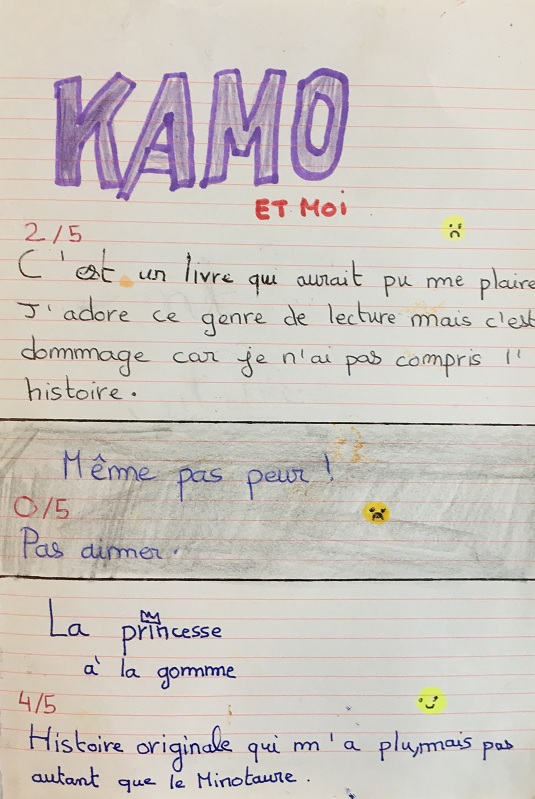 KAMO
ET MOI
2/5
C'est un livre qui aurait pu me plaire
J'adore ce genre de lecture mais c'est
dommage car je n'ai pas compris l'
histoire.
Même pas peur !
0/5
Pas aimer.
La princesse
à la gomme
4/5
Histoire originale qui m'a plu, mais pas
autant que le Minotaure.